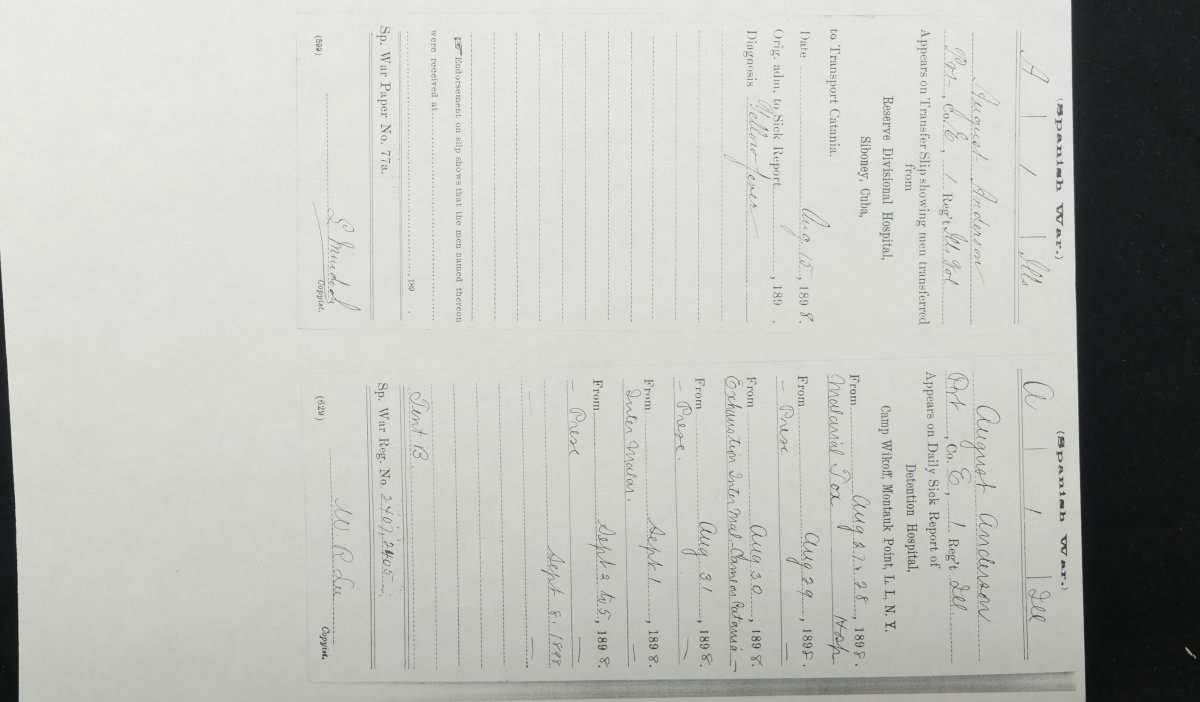 (Spanish War.)
A | 1 | Ills
August Anderson
Pvt., Co. E, 1 Reg't Ills Vol
Appears on Transfer Slip showing men transferred
from
Reserve Divisional Hospital,
Siboney, Cuba,
to Transport Catania.
Date Aug 15, 1898.
Orig. adm. to Sick Report, 189 .
Diagnosis Yellow fever
Endorsement on slip shows that the men named thereon
were received at
, 189 .
Sp. War Paper No. 77a.
(599)
Copyist.
(Spanish War.)
A | 1 | Ill
August Anderson
Pvt, Co. E, 1 Reg't Ill
Appears on Daily Sick Report of
Detention Hospital,
Camp Wikoff, Montauk Point, L. I., N. Y.
From Aug 27 & 28, 1898.
Malarial Tox Hosp
From Aug 29, 1898.
— Prese —
From Aug 30, 1898.
Exhaustion Inter Mal. Came as Catania —
From Aug 31, 1898.
— Prese. —
From Sept 1, 1898.
Inter Malar. —
From Sept 2 to 5, 1898.
— Prese —
Sept 8, 1898
Tent 13.
Sp. War Reg. No. 2407, 2405
(629)
W. R. Lee
Copyist.